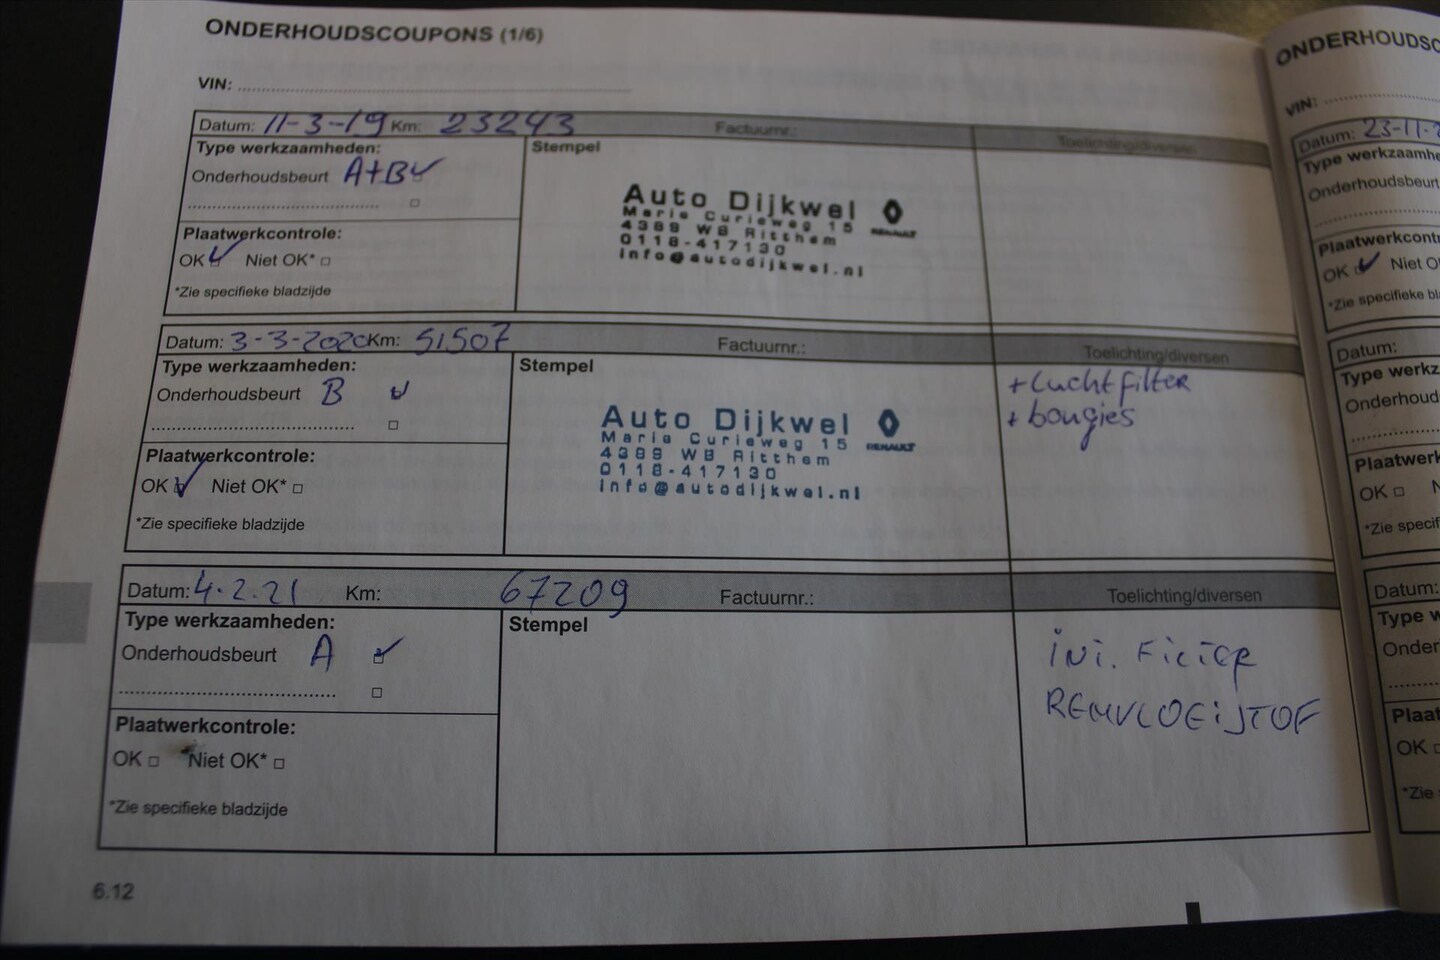 ONDERHOUDSCOUPONS (1/6)
VIN:
Datum: 11-3-19 Km: 23243 Factuurnr.: Toelichting/diversen
Type werkzaamheden: Stempel
Onderhoudsbeurt A+B
Plaatwerkcontrole:
OK Niet OK*
*Zie specifieke bladzijde
Auto Dijkwel
Marie Curieweg 15 RENAULT
4389 WB Ritthem
0118-417130
info@autodijkwel.nl
Datum: 3-3-2020 Km: 51.507 Factuurnr.: Toelichting/diversen
Type werkzaamheden: Stempel
Onderhoudsbeurt B
Plaatwerkcontrole:
OK Niet OK*
*Zie specifieke bladzijde
Auto Dijkwel
Marie Curieweg 15 RENAULT
4389 WB Ritthem
0118-417130
info@autodijkwel.nl
+ Luchtfilter
+ bougies
Datum: 4.2.21 Km: 67209 Factuurnr.: Toelichting/diversen
Type werkzaamheden: Stempel
Onderhoudsbeurt A
Plaatwerkcontrole:
OK Niet OK*
*Zie specifieke bladzijde
iNi. FiLTER
REMVLOEiSTOF
6.12
ONDERHOUDSC
VIN:
Datum: 23-11-2
Type werkzaamhe
Onderhoudsbeurt
Plaatwerkcont
OK Niet O
*Zie specifieke bl
Datum:
Type werkz
Onderhoud
Plaatwerk
OK N
*Zie specif
Datum:
Type w
Onder
Plaat
OK
*Zie